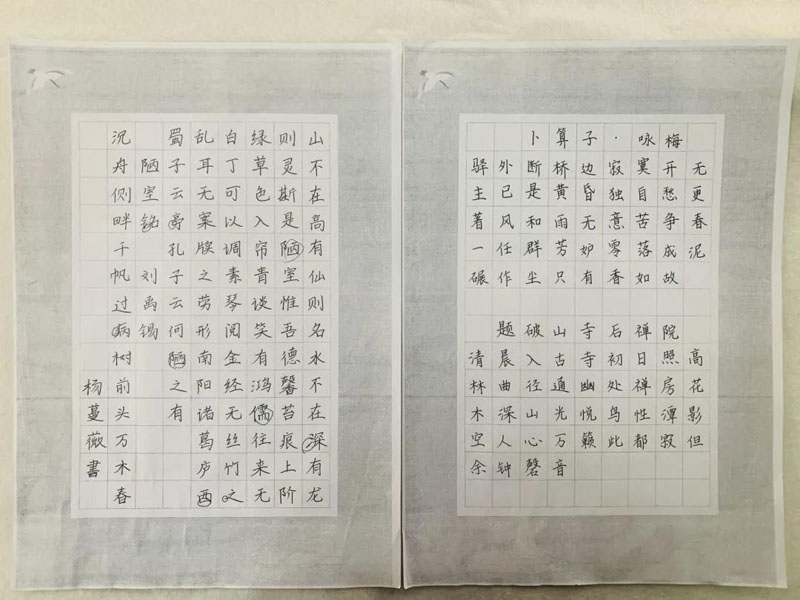 山不在高有仙则名水不在深有龙
则灵斯是陋室惟吾德馨苔痕上阶
绿草色入帘青谈笑有鸿儒往来无
白丁可以调素琴阅金经无丝竹之
乱耳无案牍之劳形南阳诸葛庐西
蜀子云亭孔子云何陋之有
陋室铭 刘禹锡
沉舟侧畔千帆过病树前头万木春
杨蔓薇書
卜算子·咏梅
驿外断桥边寂寞开无
主已是黄昏独自愁更
著风和雨无意苦争春
一任群芳妒零落成泥
碾作尘只有香如故
题破山寺后禅院
清晨入古寺初日照高
林曲径通幽处禅房花
木深山光悦鸟性潭影
空人心万籁此都寂但
余钟磬音